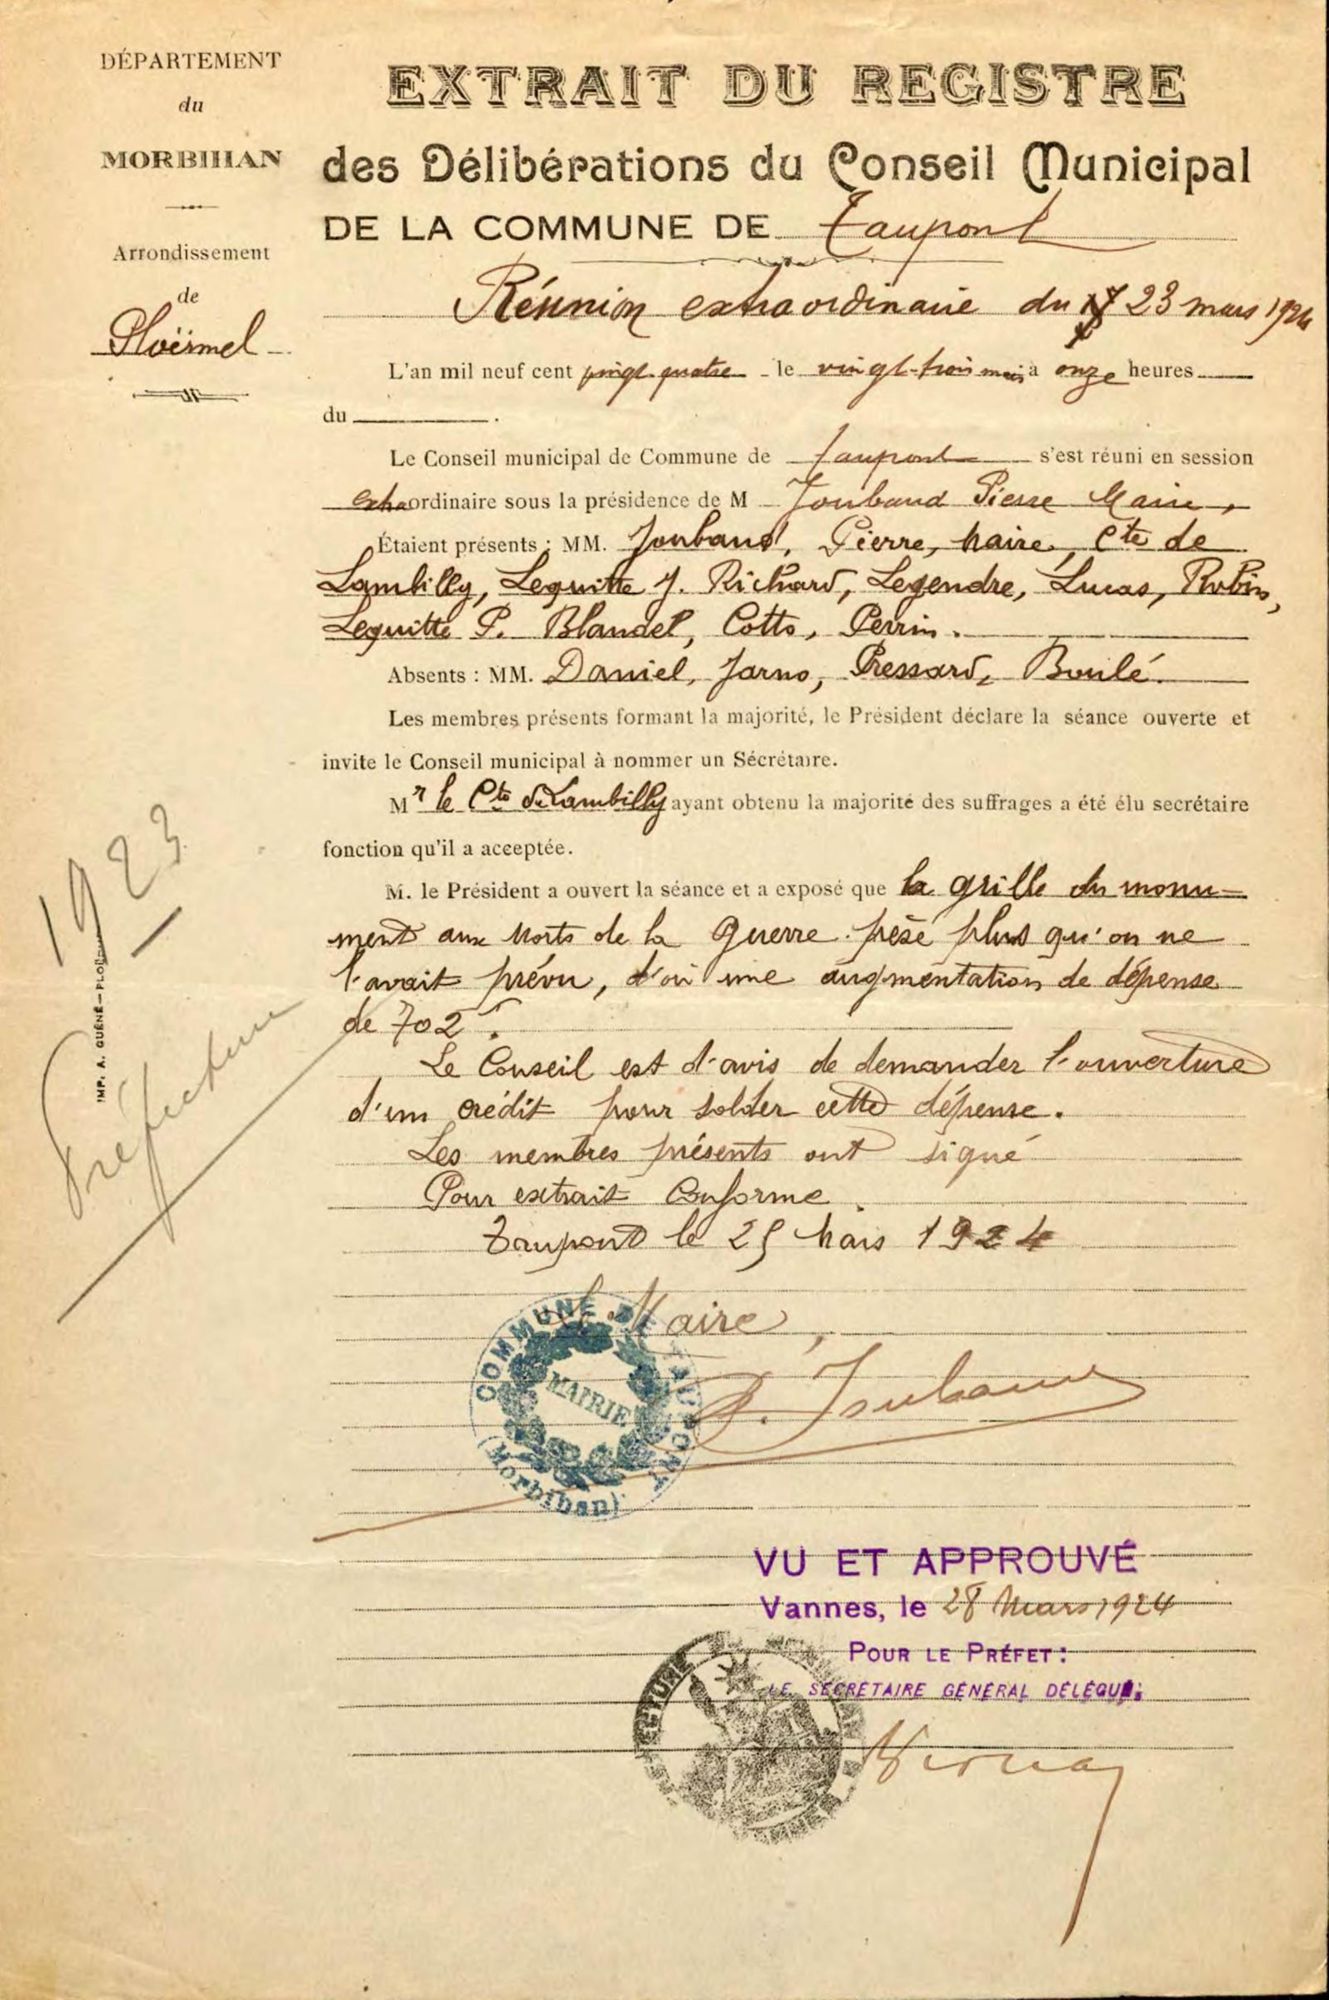 DÉPARTEMENT
du
MORBIHAN
Arrondissement
de
Ploërmel
EXTRAIT DU REGISTRE
des Délibérations du Conseil Municipal
DE LA COMMUNE DE Taupont
Réunion extraordinaire du 23 mars 1924
L'an mil neuf cent vingt quatre le vingt-trois mars à onze heures
du
Le Conseil municipal de Commune de Taupont s'est réuni en session
extraordinaire sous la présidence de M Joubaud Pierre Maire,
Étaient présents : MM. Joubaud, Pierre, Maire, Cte de
Lambilly, Lequitte J. Richard, Legendre, Lucas, Robin,
Lequitte P. Blandel, Cotto, Perrin.
Absents : MM. Daniel, Jarno, Pressard, Boulé.
Les membres présents formant la majorité, le Président déclare la séance ouverte et
invite le Conseil municipal à nommer un Sécrétaire.
Mr le Cte de Lambilly ayant obtenu la majorité des suffrages a été élu secrétaire
fonction qu'il a acceptée.
M. le Président a ouvert la séance et a exposé que la grille du monu=
ment aux Morts de la guerre pèse plus qu'on ne
l'avait prévu, d'où une augmentation de dépense
de 702 f.
Le Conseil est d'avis de demander l'ouverture
d'un crédit pour solder cette dépense.
Les membres présents ont signé
Pour extrait Conforme.
Taupont le 25 Mars 1924
Le Maire,
P. Joubaud
COMMUNE DE TAUPONT
MAIRIE
(Morbihan)
VU ET APPROUVÉ
Vannes, le 28 Mars 1924
POUR LE PRÉFET :
LE SECRÉTAIRE GÉNÉRAL DÉLÉGUÉ:
1923
IMP. A. GUÉNÉ-
Préfecture